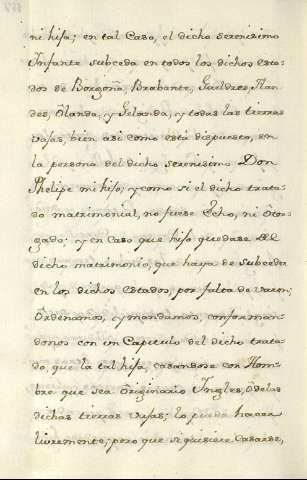 ni hija; en tal Caso, el dicho serenisimo
Infante subceda en todos los dichos esta-
dos de Borgoña, Brabante, Gueldres, Flan-
des, Olanda, y Gelanda, y todas las tierras
vajas, bien asi como está dispuesto, en
la persona del dicho serenisimo Don
Phelipe mi hijo; y como si el dicho trata-
do matrimonial, no fuese Echo, ni Otor-
gado; y en caso que hija quedase del
dicho matrimonio, que haya de subceda
en los dichos Estados, por falta de varon;
Ordenamos, y mandamos, conforman-
donos con un Capitulo del dicho trata-
do, que la tal hija, casandose con Hom-
bre que sea Originario Yngles, ó de las
dichas tierras vajas; lo pueda hacer
livremente; pero que si quisiere Casarse,